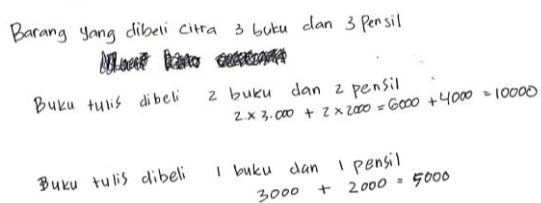 Barang yang dibeli citra 3 buku dan 3 Pensil
Buku tulis dibeli 2 buku dan 2 pensil
2 x 3.000 + 2 x 2000 = 6000 + 4000 = 10000
Buku tulis dibeli 1 buku dan 1 pensil
3000 + 2000 = 5000